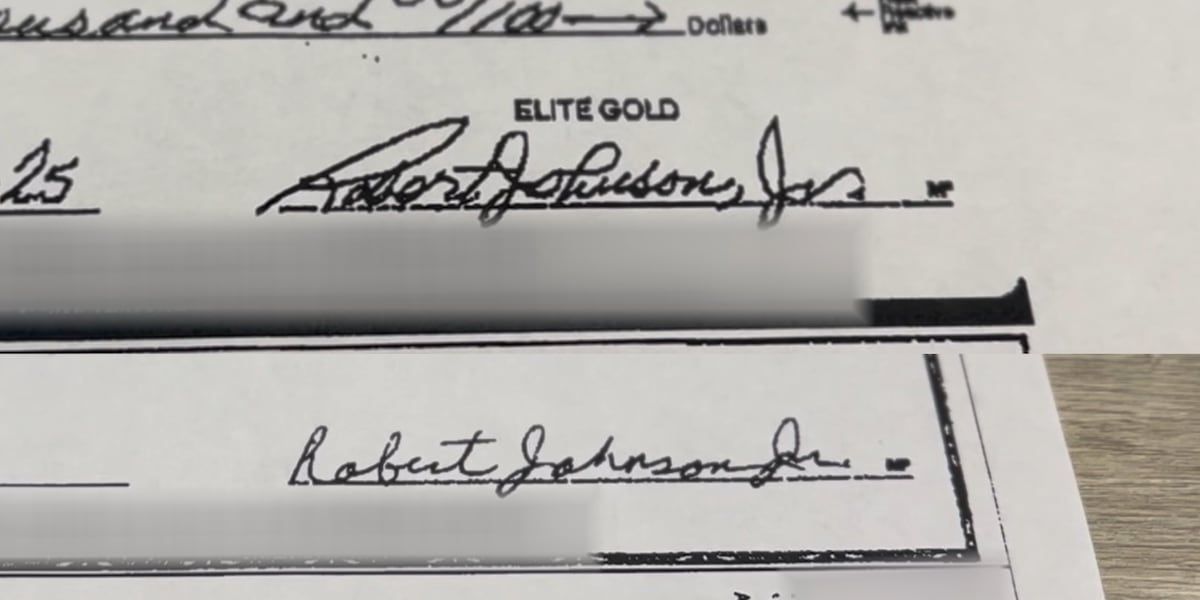 and 00/100 Dollars
ELITE GOLD
25 Robert Johnson, Jr. MP
Robert Johnson Jr. MP